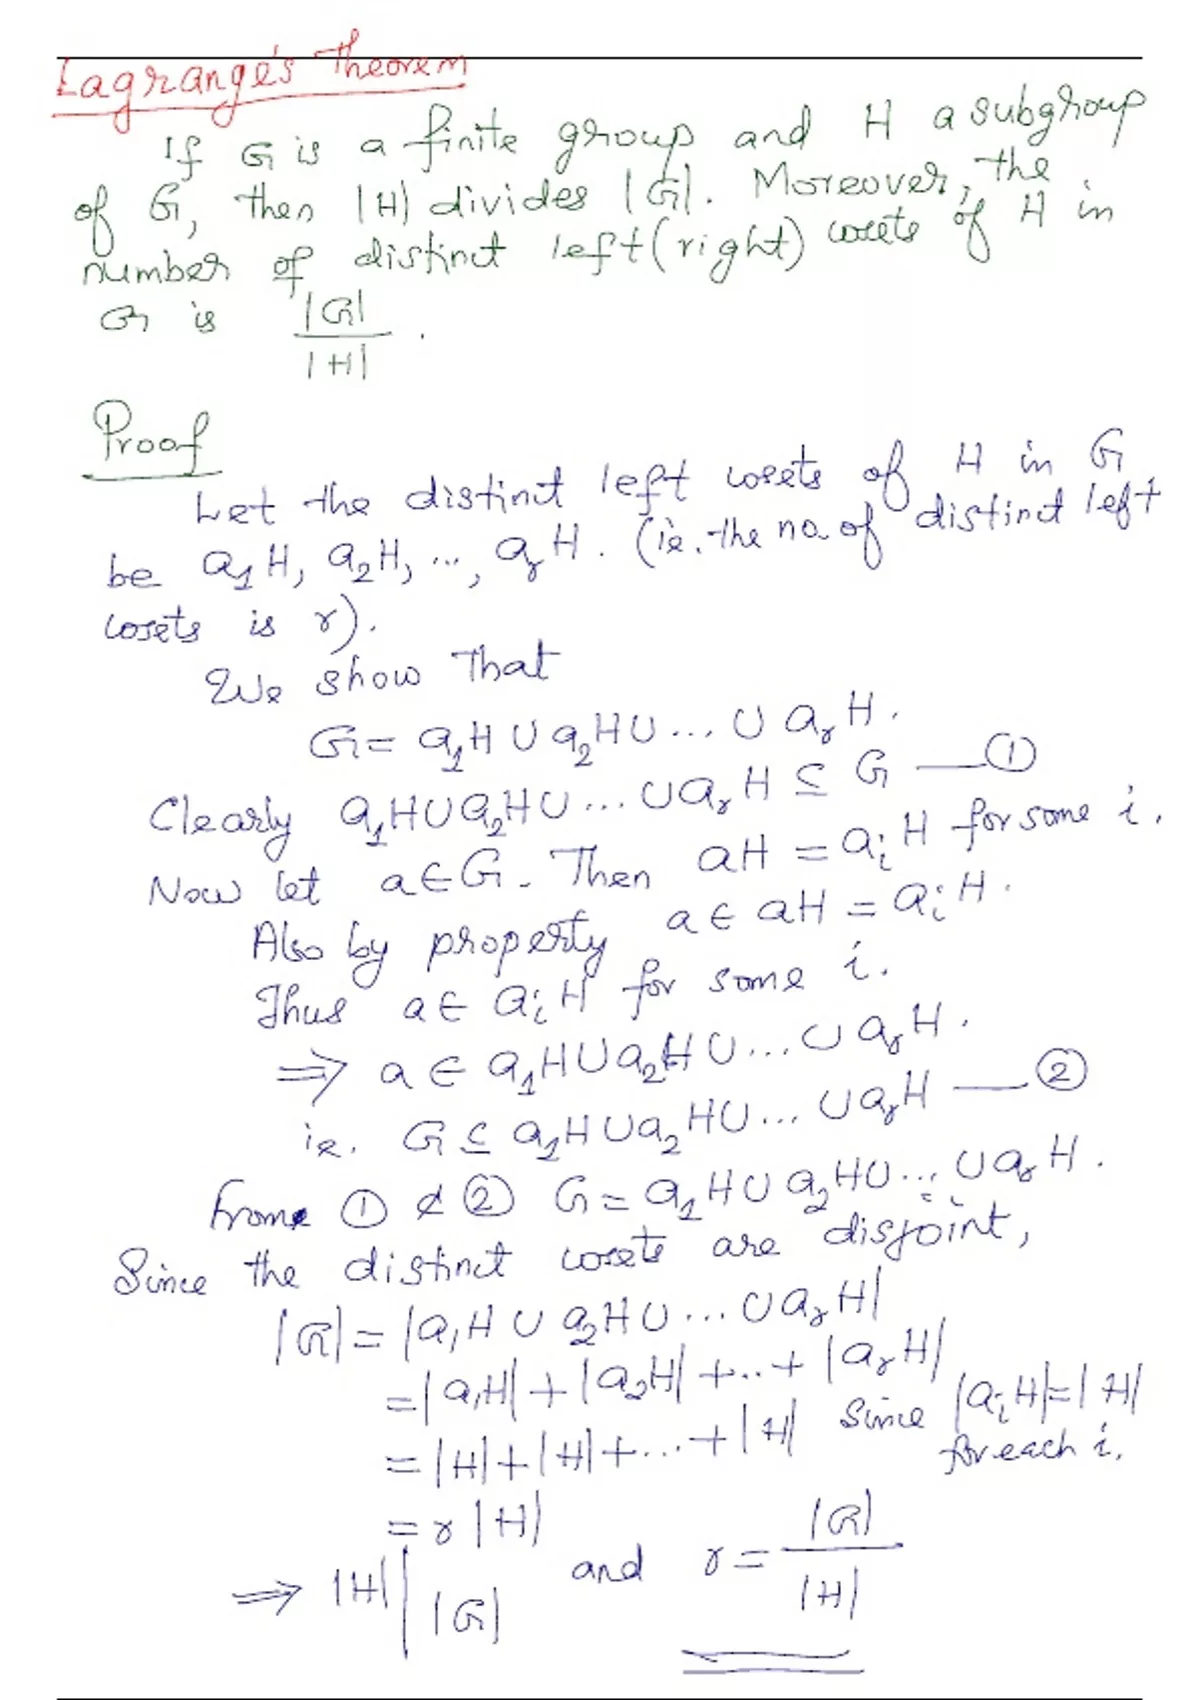 Lagrange's Theorem
If G is a finite group and H a subgroup
of G, then |H| divides |G|. Moreover, the
number of distinct left(right) cosets of H in
G is |G|/|H|.
Proof
Let the distinct left cosets of H in G
be a₁H, a₂H, ..., aᵣH. (ie. the no. of distinct left
cosets is r).
We show That
G = a₁H ∪ a₂H ∪ ... ∪ aᵣH.
Clearly a₁H ∪ a₂H ∪ ... ∪ aᵣH ⊆ G — ①
Now let a ∈ G. Then aH = aᵢH for some i.
Also by property a ∈ aH = aᵢH.
Thus a ∈ aᵢH for some i.
⇒ a ∈ a₁H ∪ a₂H ∪ ... ∪ aᵣH.
ie. G ⊆ a₁H ∪ a₂H ∪ ... ∪ aᵣH — ②
From ① & ② G = a₁H ∪ a₂H ∪ ... ∪ aᵣH.
Since the distinct cosets are disjoint,
|G| = |a₁H ∪ a₂H ∪ ... ∪ aᵣH|
= |a₁H| + |a₂H| + ... + |aᵣH|
= |H| + |H| + ... + |H| Since |aᵢH| = |H|
for each i.
= r |H|
⇒ |H| | |G| and r = |G|/|H|